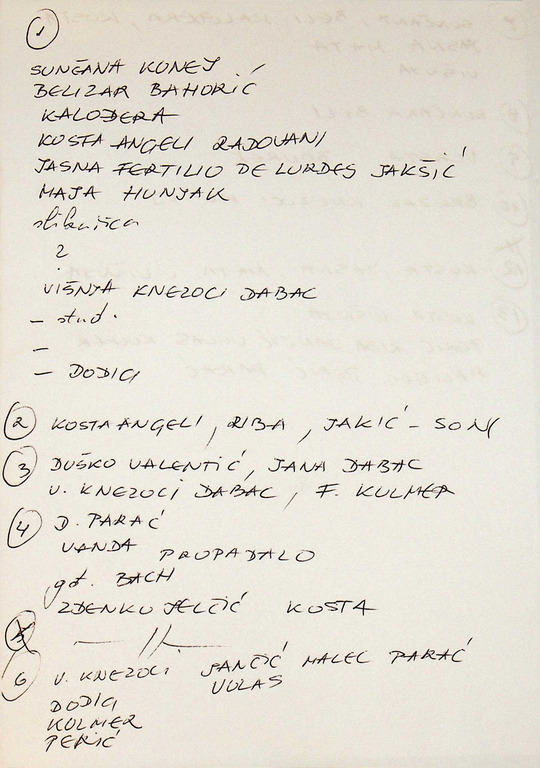 1
SUNČANA KONEJ
BELIZAR BAHORIĆ
KALOĐERA
KOSTA ANGELI RADOVANI
JASNA FERTILIO DE LURDES JAKŠIĆ
MAJA HUNJAK
slikarica
?
VIŠNYA KNEZOCI DABAC
- stud.
-
- DODIG
2 KOSTA ANGELI, RIBA, JAKIĆ - SONI
3 DUŠKO VALENTIĆ, JANA DABAC
V. KNEZOCI DABAC, F. KULMER
4 D. PARAĆ
VANDA PROPADALO
gđ. BACH
ZDENKO JELČIĆ KOSTA
5 — // —
6 V. KNEZOCI JANČIĆ MALEC PARAĆ
DODIG VULAS
KULMER
PERIĆ